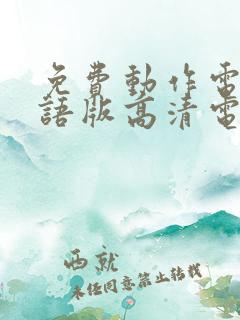 免費動作電
語版高清電
西就
未经同意禁止转载